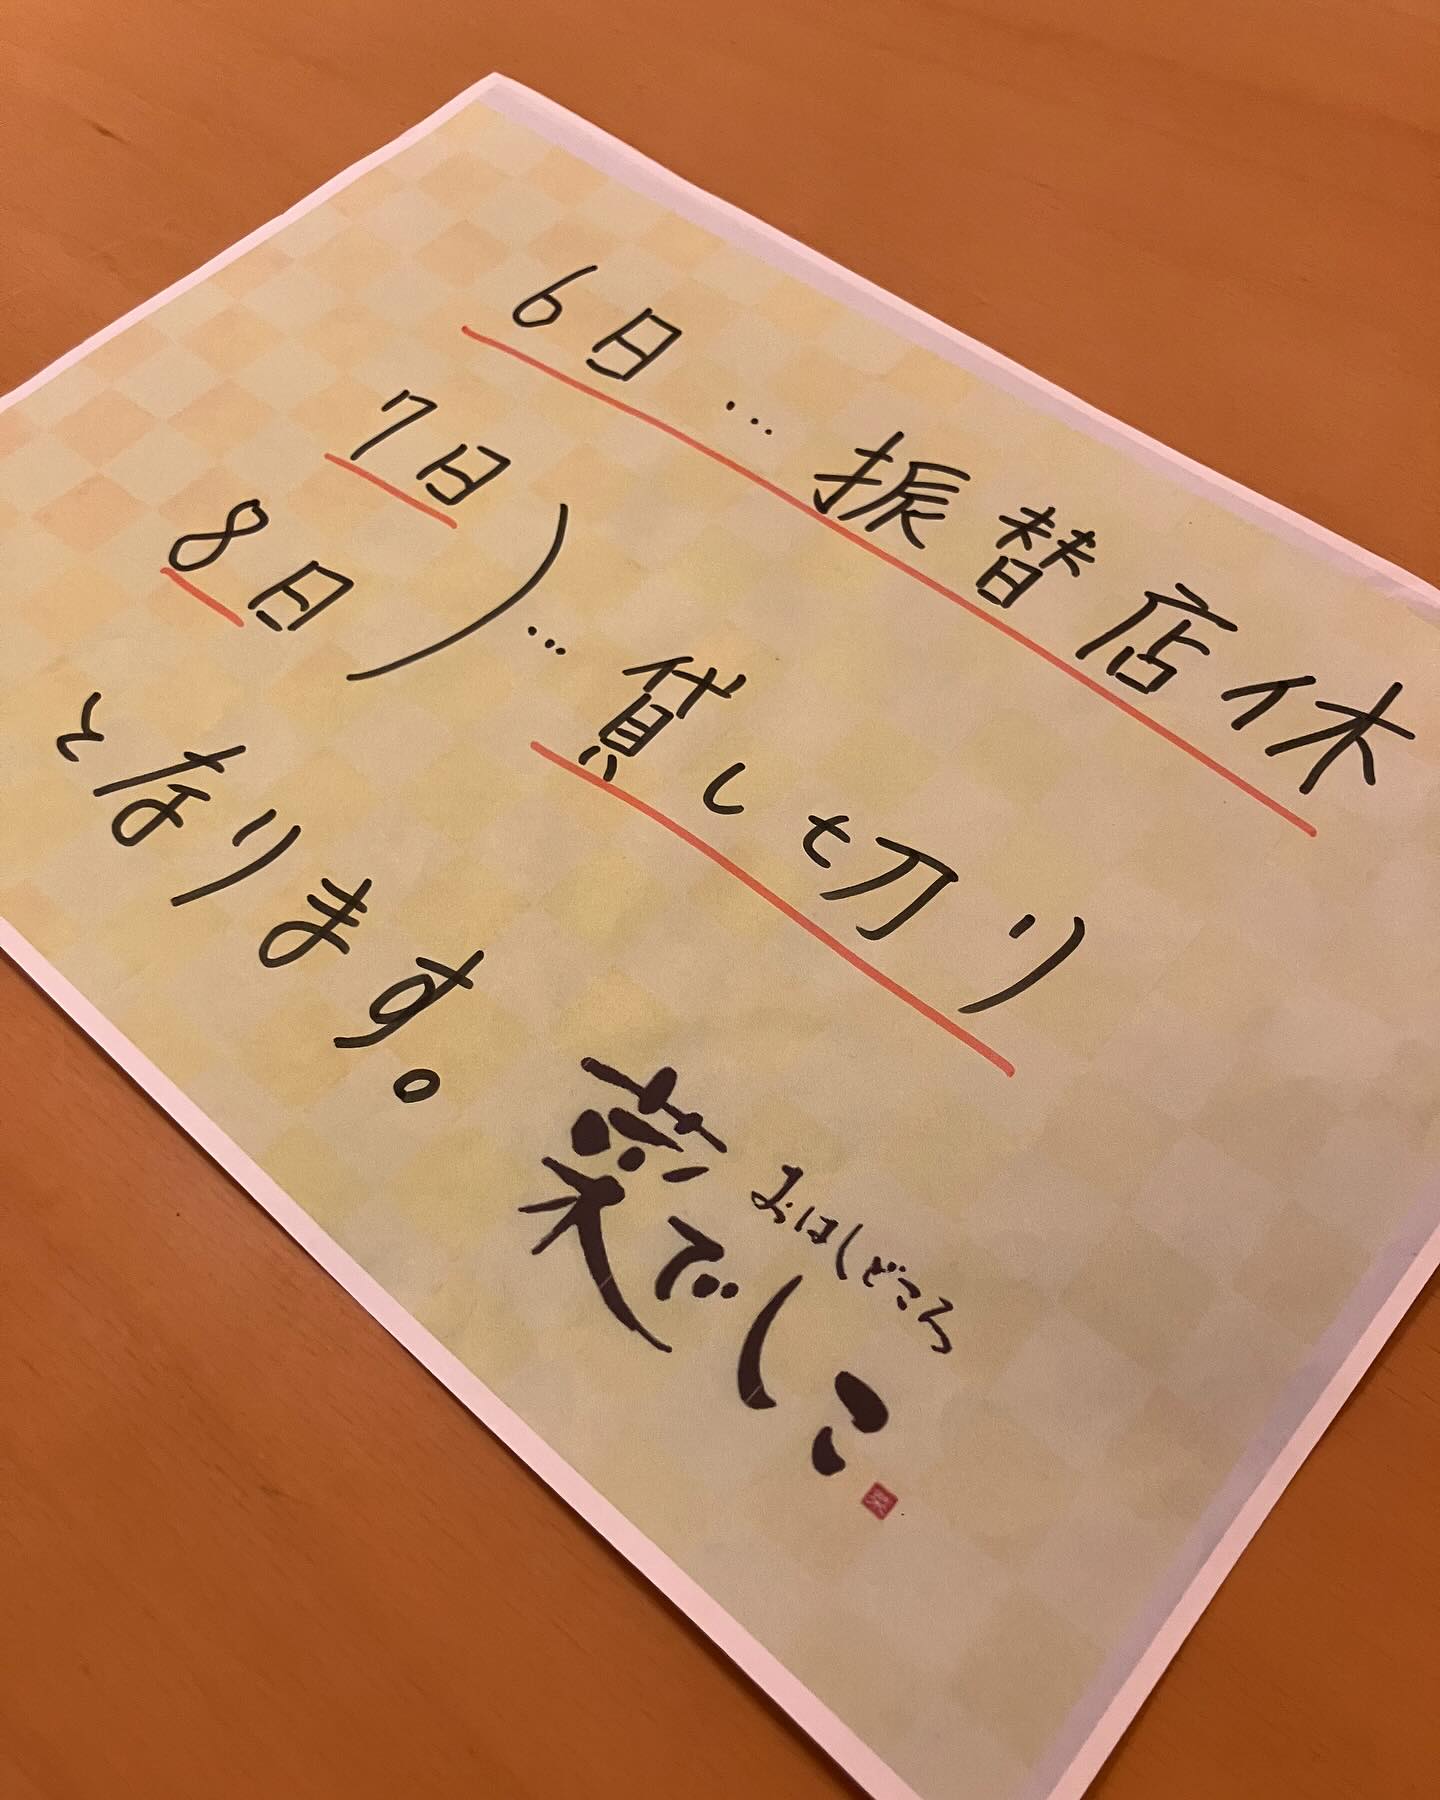 6日…振替店休
7日
8日)…貸し切り
と有ります。
おはしどころ
菜でしこ